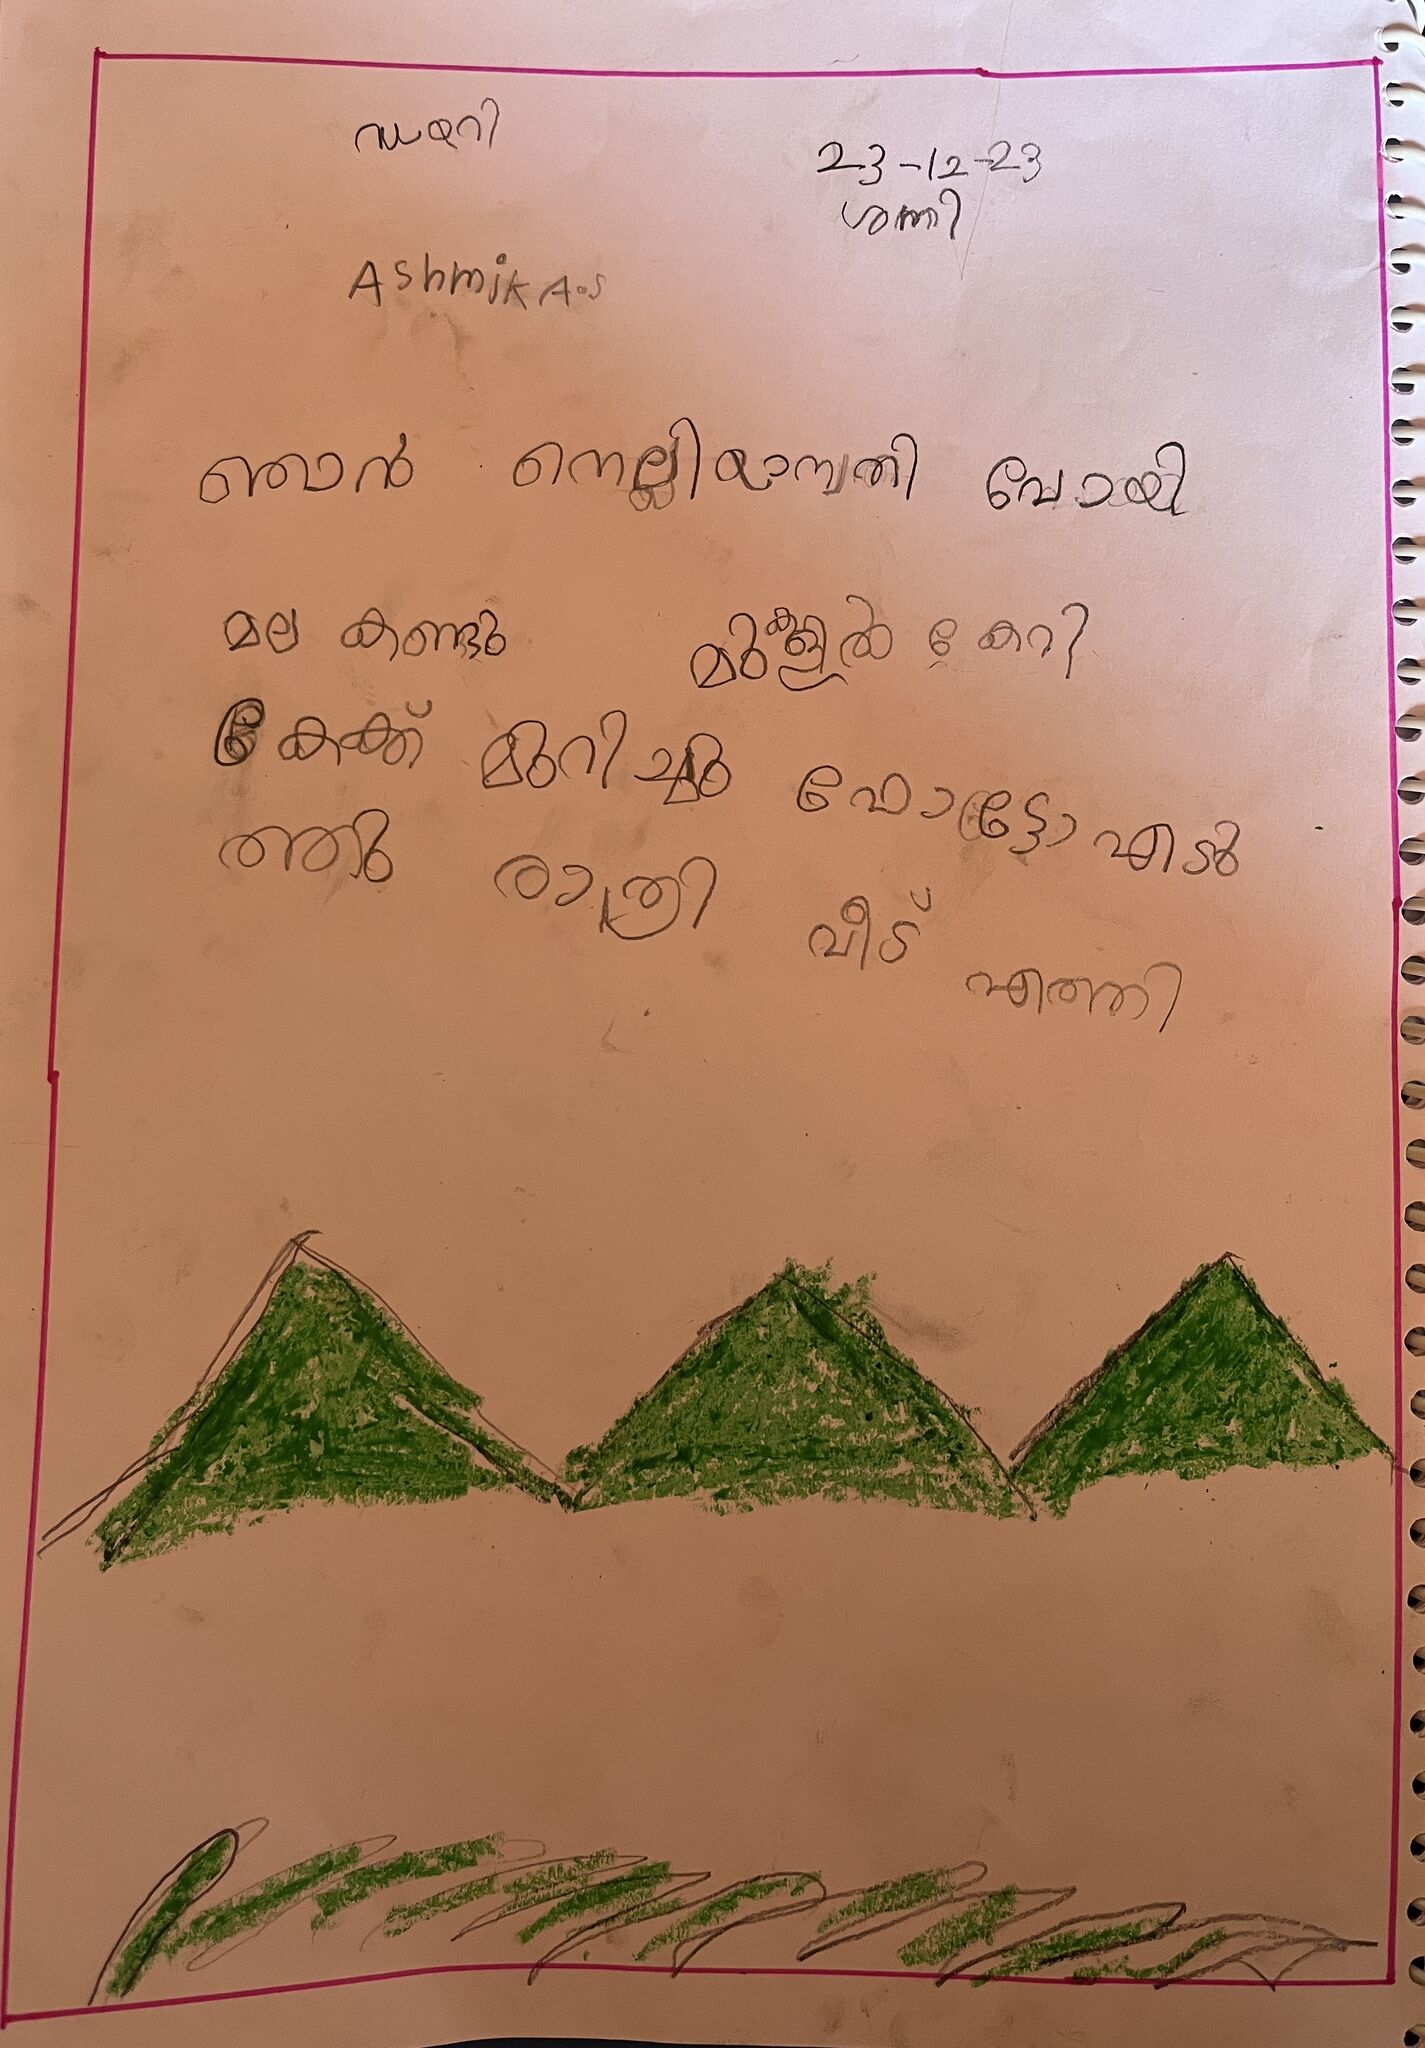 ഡയറി
23-12-23
ശനി
AshmikA.s
ഞാൻ നെല്ലിയാമ്പതി പോയി
മല കണ്ടു മുകളിൽ കേറി
കേക്ക് മുറിച്ചു ഫോട്ടോ എടു
ത്തു രാത്രി വീട് എത്തി